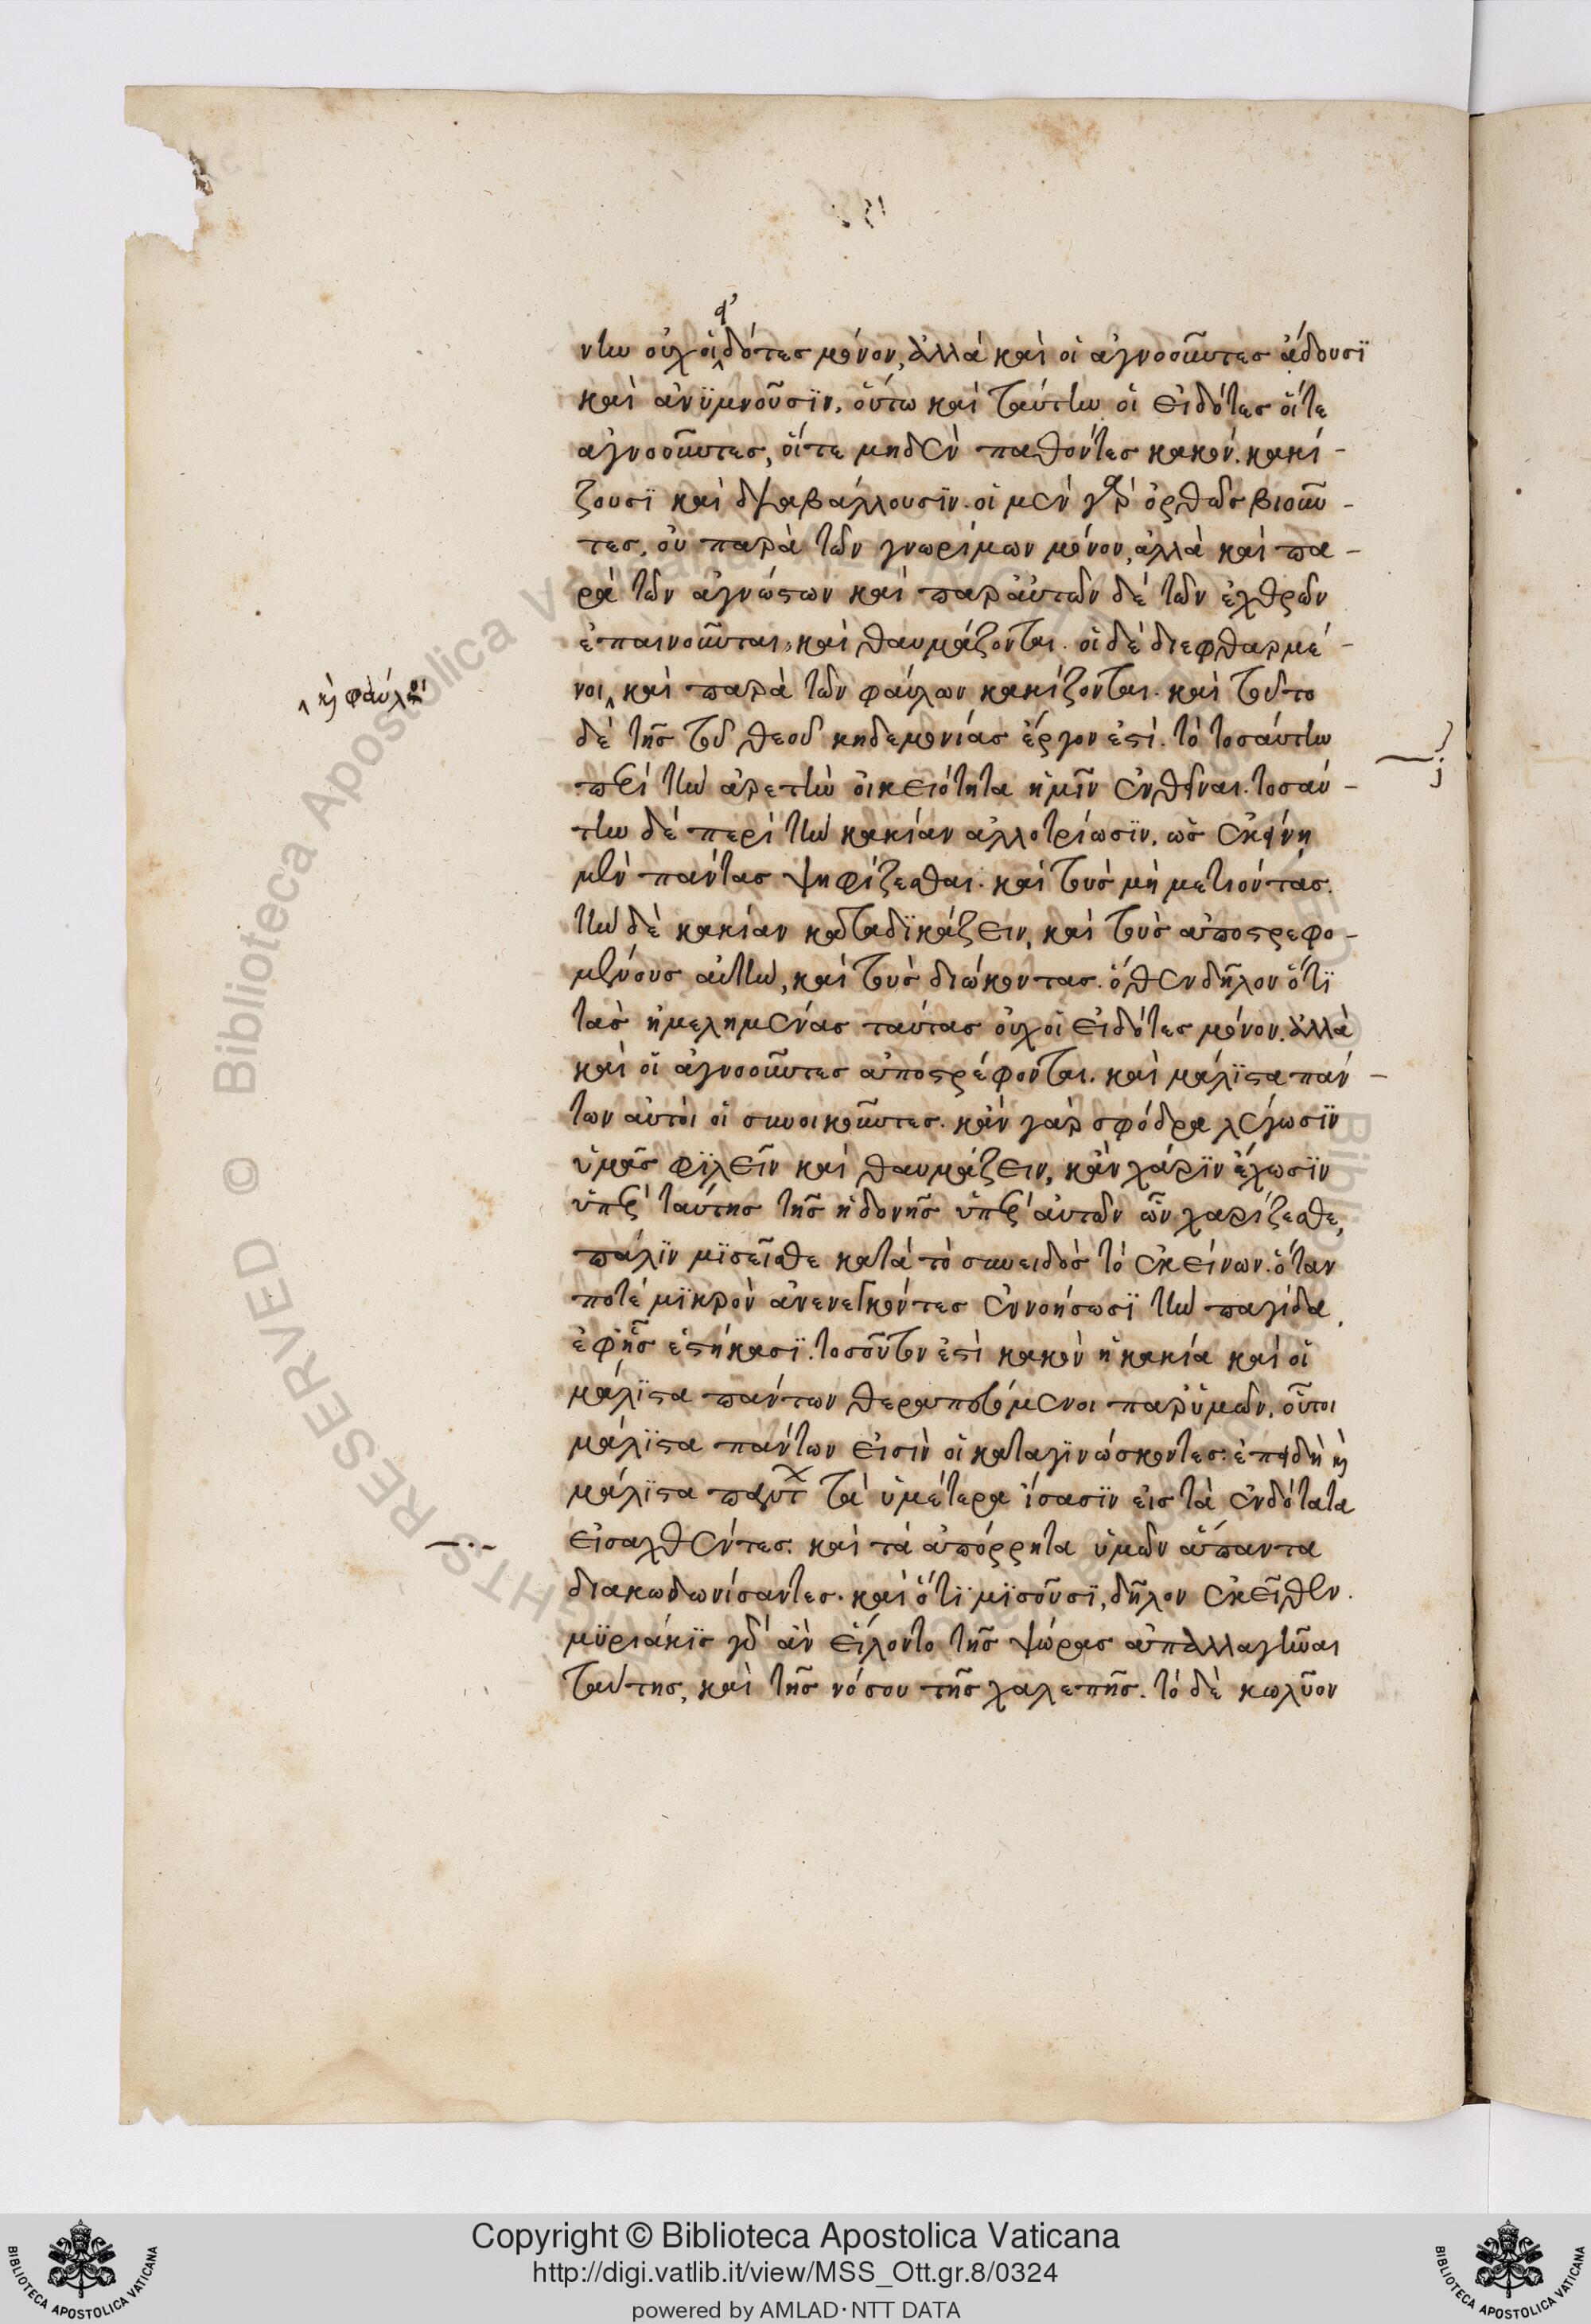 νην οὐχ οἱ εἰδότες μόνον, ἀλλὰ καὶ οἱ ἀγνοοῦντες ἄδουσϊ
καὶ ἀνϋμνοῦσϊν. οὕτω καὶ ταύτην οἱ εἰδότες οἵτε
ἀγνοοῦντες, οἵτε μηδὲν παθόντες κακόν. κακί-
ζουσϊ καὶ διαβάλλουσϊν. οἱ μὲν γὰρ ὀρθῶς βιοῦν-
τες, οὐ παρὰ τῶν γνωρίμων μόνον, ἀλλὰ καὶ πα-
ρὰ τῶν ἀγνώστων καὶ παρ' αὐτῶν δὲ τῶν ἐχθρῶν
ἐπαινοῦνται, καὶ θαυμάζονται. οἱ δὲ διεφθαρμέ-
^ κ φαύλοι
νοι, ^ καὶ παρὰ τῶν φαύλων κακίζονται. καὶ τοῦτο
δὲ τῆς τοῦ θεοῦ κηδεμονίας ἔργον ἐστὶ. τὸ τοσαύτην
περὶ τὴν ἀρετὴν οἰκειότητα ἡμῖν ἐνθεῖναι. τοσαύ-
την δὲ περὶ τὴν κακίαν ἀλλοτρίωσϊν. ὡς ἐκείνη
μὲν πάντας ψηφίζεσθαι. καὶ τοὺς μὴ μετιόντας.
τὴν δὲ κακίαν καταδϊκάζειν, καὶ τοὺς ἀποστρεφο-
μένους αὐτὴν, καὶ τοὺς διώκοντας. ὅθεν δῆλον ὅτϊ
τὰς ἠμελημένας ταύτας οὐχ οἱ εἰδότες μόνον. ἀλλὰ
καὶ οἱ ἀγνοοῦντες ἀποστρέφονται. καὶ μάλϊστα πάν-
των αὐτοὶ οἱ συνοικοῦντες. κἂν γὰρ σφόδρα λέγωσϊν
ὑμᾶς φϊλεῖν καὶ θαυμάζειν, κἂν χάρϊν ἔχωσϊν
ὑπὲρ ταύτης τῆς ἡδονῆς ὑπὲρ αὐτῶν ὧν χαρίζεσθε,
πάλϊν μϊσεῖσθε κατὰ τὸ συνειδὸς τὸ ἐκείνων. ὅταν
ποτὲ μϊκρὸν ἀνενεγκόντες ἐννοήσωσϊ τὴν παγίδα,
ἐφ' ἧς ἑστήκασϊ. τοσοῦτον ἐστὶ κακὸν ἡ κακία καὶ οἱ
μάλϊστα πάντων θεραπευόμενοι παρ' ὑμῶν, οὗτοι
μάλϊστα πάντων εἰσὶν οἱ καταγϊνώσκοντες. ἐπειδὴ κ
μάλϊστα πάντ τὰ ὑμέτερα ἴσασϊν εἰς τὰ ἐνδότατα
εἰσαχθέντες. καὶ τὰ ἀπόρρητα ὑμῶν ἅπαντα
διακωδωνίσαντες. καὶ ὅτϊ μϊσοῦσϊ, δῆλον ἐκεῖθεν.
μϋριάκϊς γοῦ ἂν εἵλοντο τῆς ψώρας ἀπαλλαγῆναι
ταύτης, καὶ τῆς νόσου τῆς χαλεπῆς. τὸ δὲ κωλῦον
Copyright © Biblioteca Apostolica Vaticana
http://digi.vatlib.it/view/MSS_Ott.gr.8/0324
powered by AMLAD·NTT DATA